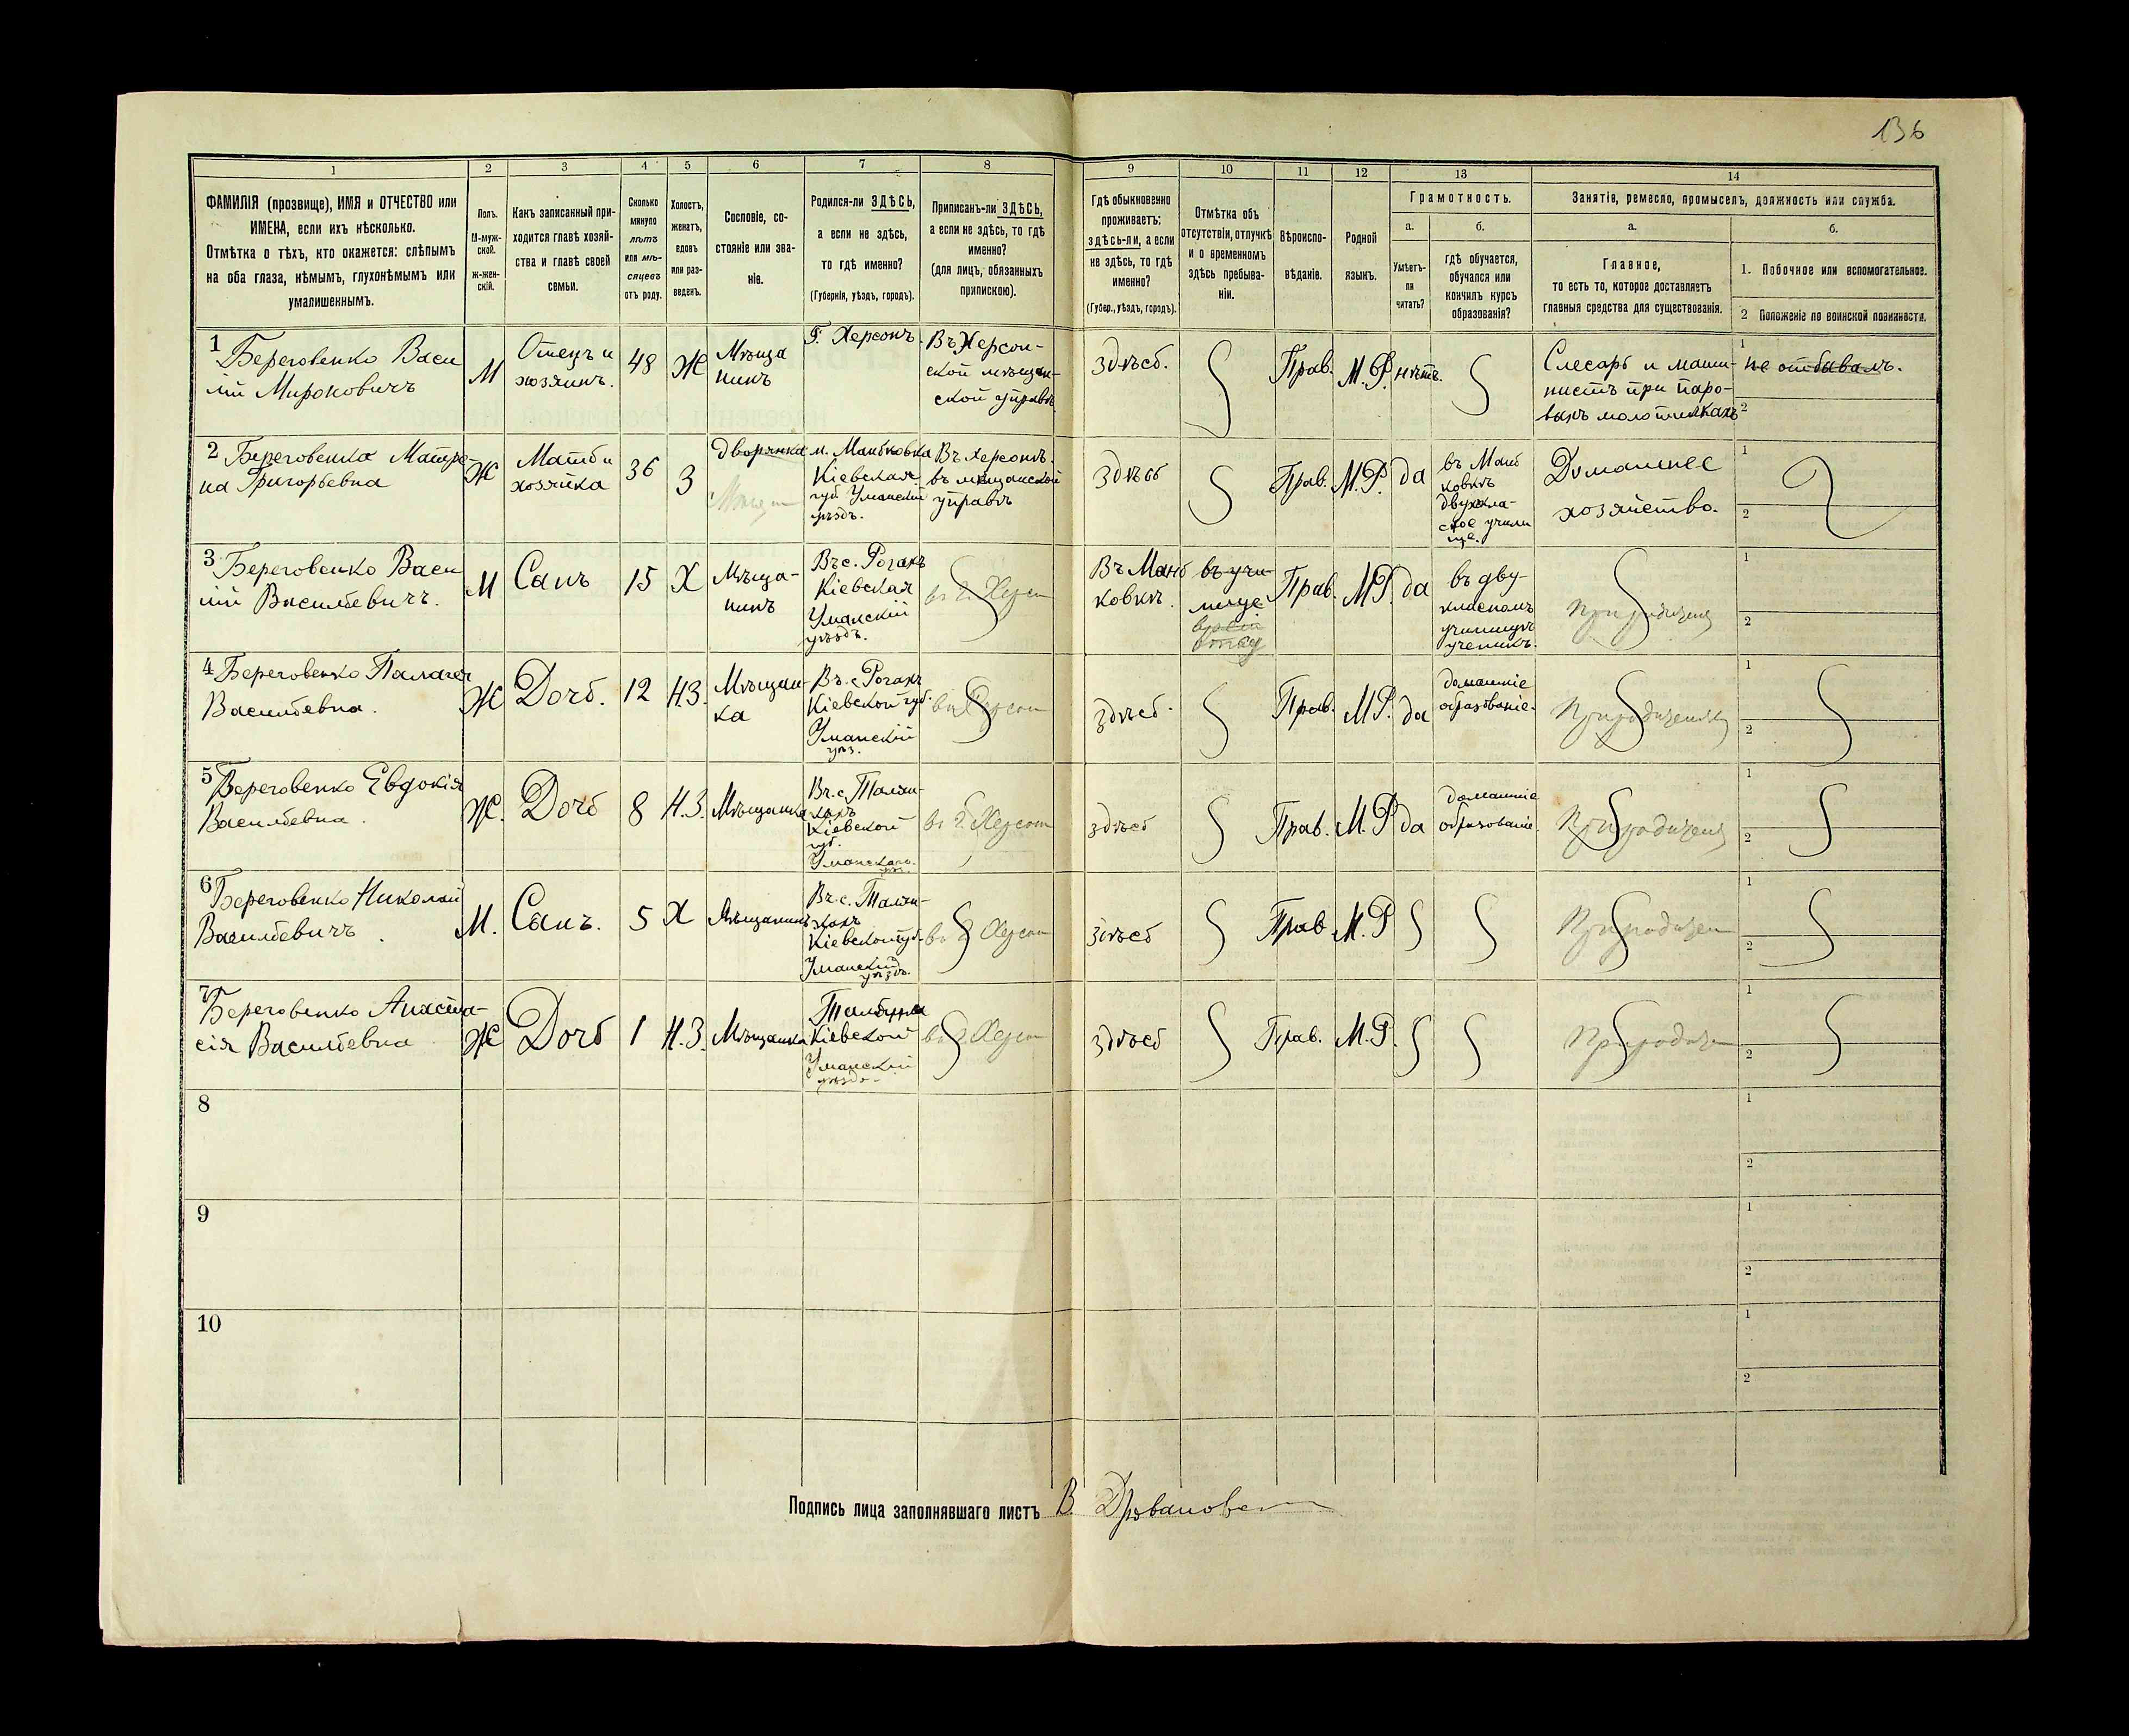 136
1
2
3
4
5
6
7
8
9
10
11
12
13
14
ФАМИЛІЯ (прозвище), ИМЯ и ОТЧЕСТВО или
ИМЕНА, если ихъ нѣсколько.
Отмѣтка о тѣхъ, кто окажется: слѣпымъ
на оба глаза, нѣмымъ, глухонѣмымъ или
умалишеннымъ.
Полъ.
М-муж-
ской.
ж-жен-
скій.
Какъ записанный при-
ходится главѣ хозяй-
ства и главѣ своей
семьи.
Сколько
минуло
лѣтъ
или мѣ-
сяцевъ
отъ роду.
Холостъ,
женатъ,
вдовъ
или раз-
веденъ.
Сословіе, со-
стояніе или зва-
ніе.
Родился-ли ЗДѢСЬ,
а если не здѣсь,
то гдѣ именно?
(Губернія, уѣздъ, городъ).
Приписанъ-ли ЗДѢСЬ,
а если не здѣсь, то гдѣ
именно?
(для лицъ, обязанныхъ
припискою).
Гдѣ обыкновенно
проживаетъ:
здѣсь-ли, а если
не здѣсь, то гдѣ
именно?
(Губер., уѣздъ, городъ).
Отмѣтка объ
отсутствіи, отлучкѣ
и о временномъ
здѣсь пребыва-
ніи.
Вѣроиспо-
вѣданіе.
Родной
языкъ.
Грамотность.
а.
Умѣетъ-
ли
читать?
б.
гдѣ обучается,
обучался или
кончилъ курсъ
образованія?
Занятіе, ремесло, промыселъ, должность или служба.
а.
Главное,
то есть то, которое доставляетъ
главныя средства для существованія.
б.
1. Побочное или вспомогательное.
2 Положеніе по воинской повинности.
1
Береговенко Васи
лій Мироновичъ
М
Отецъ и
хозяинъ.
48
Ж
Мѣща
нинъ
Г. Херсонъ.
Въ Херсон-
ской мѣщан-
ской управѣ
здѣсь.
Прав.
М.Р.
нѣтъ.
Слесарь и маши-
нистъ при паро-
выхъ молотилкахъ
1
не отбывалъ.
2
2
Береговенко Матре-
на Григорьевна
Ж
Мать и
хозяйка
36
З
дворянка
м. Маньковка
Кіевская
губ Уманскій
уѣздъ.
Въ Херсонѣ.
въ мѣщанской
управѣ
здѣсь
Прав.
М.Р.
да
въ Мань
ковкѣ
двухкла-
сное учили
ще.
Домашнее
хозяйство.
1
2
3
Береговенко Васи
лій Васильевичъ.
М
Санъ
15
Х
Мѣща-
нинъ
Въ с. Рогахъ
Кіевская
Уманскій
уѣздъ.
въ г. Херсон
Въ Мань
ковкѣ.
въ учи-
лище
Прав.
М.Р.
да
въ дву-
класномъ
училищѣ
ученикъ.
При родителѣ
1
2
4
Береговенко Палагея
Васильевна.
Ж
Дочь.
12
Н.З.
Мѣщан-
ка
Въ. с Рогахъ
Кіевской губ.
Уманскій
уѣз.
Прав.
М.Р.
да
здѣсь.
домашніе
образованіе.
При родителяхъ
1
2
5
Береговенко Евдокія
Васильевна.
Ж.
Дочь
8
Н.З.
Мѣщанка
Въ. с. Тальян-
кахъ
Кіевской
губ.
Уманскаго.
въ г. Херсон
здѣсь
Прав.
М.Р
да
домашніе
образованіе.
При родителѣ
1
2
6
Береговенко Николай
Васильевичъ.
М.
Санъ.
5
Х
Мѣщанинъ
Въ. с. Тальян-
кахъ
Кіевской губ.
Уманский
уѣздъ.
въ г Херсон
здѣсь
Прав
М.Р
При родител
1
2
7
Береговенко Анаста-
сія Васильевна
Ж
Дочь
1
Н.З.
Мѣщанка
Кіевской
Уманскій
уѣздъ.
въ г Херсон
здѣсь
Прав.
М.Р.
При родител
1
2
8
1
2
9
1
2
10
1
2
Подпись лица заполнявшаго листъ В.